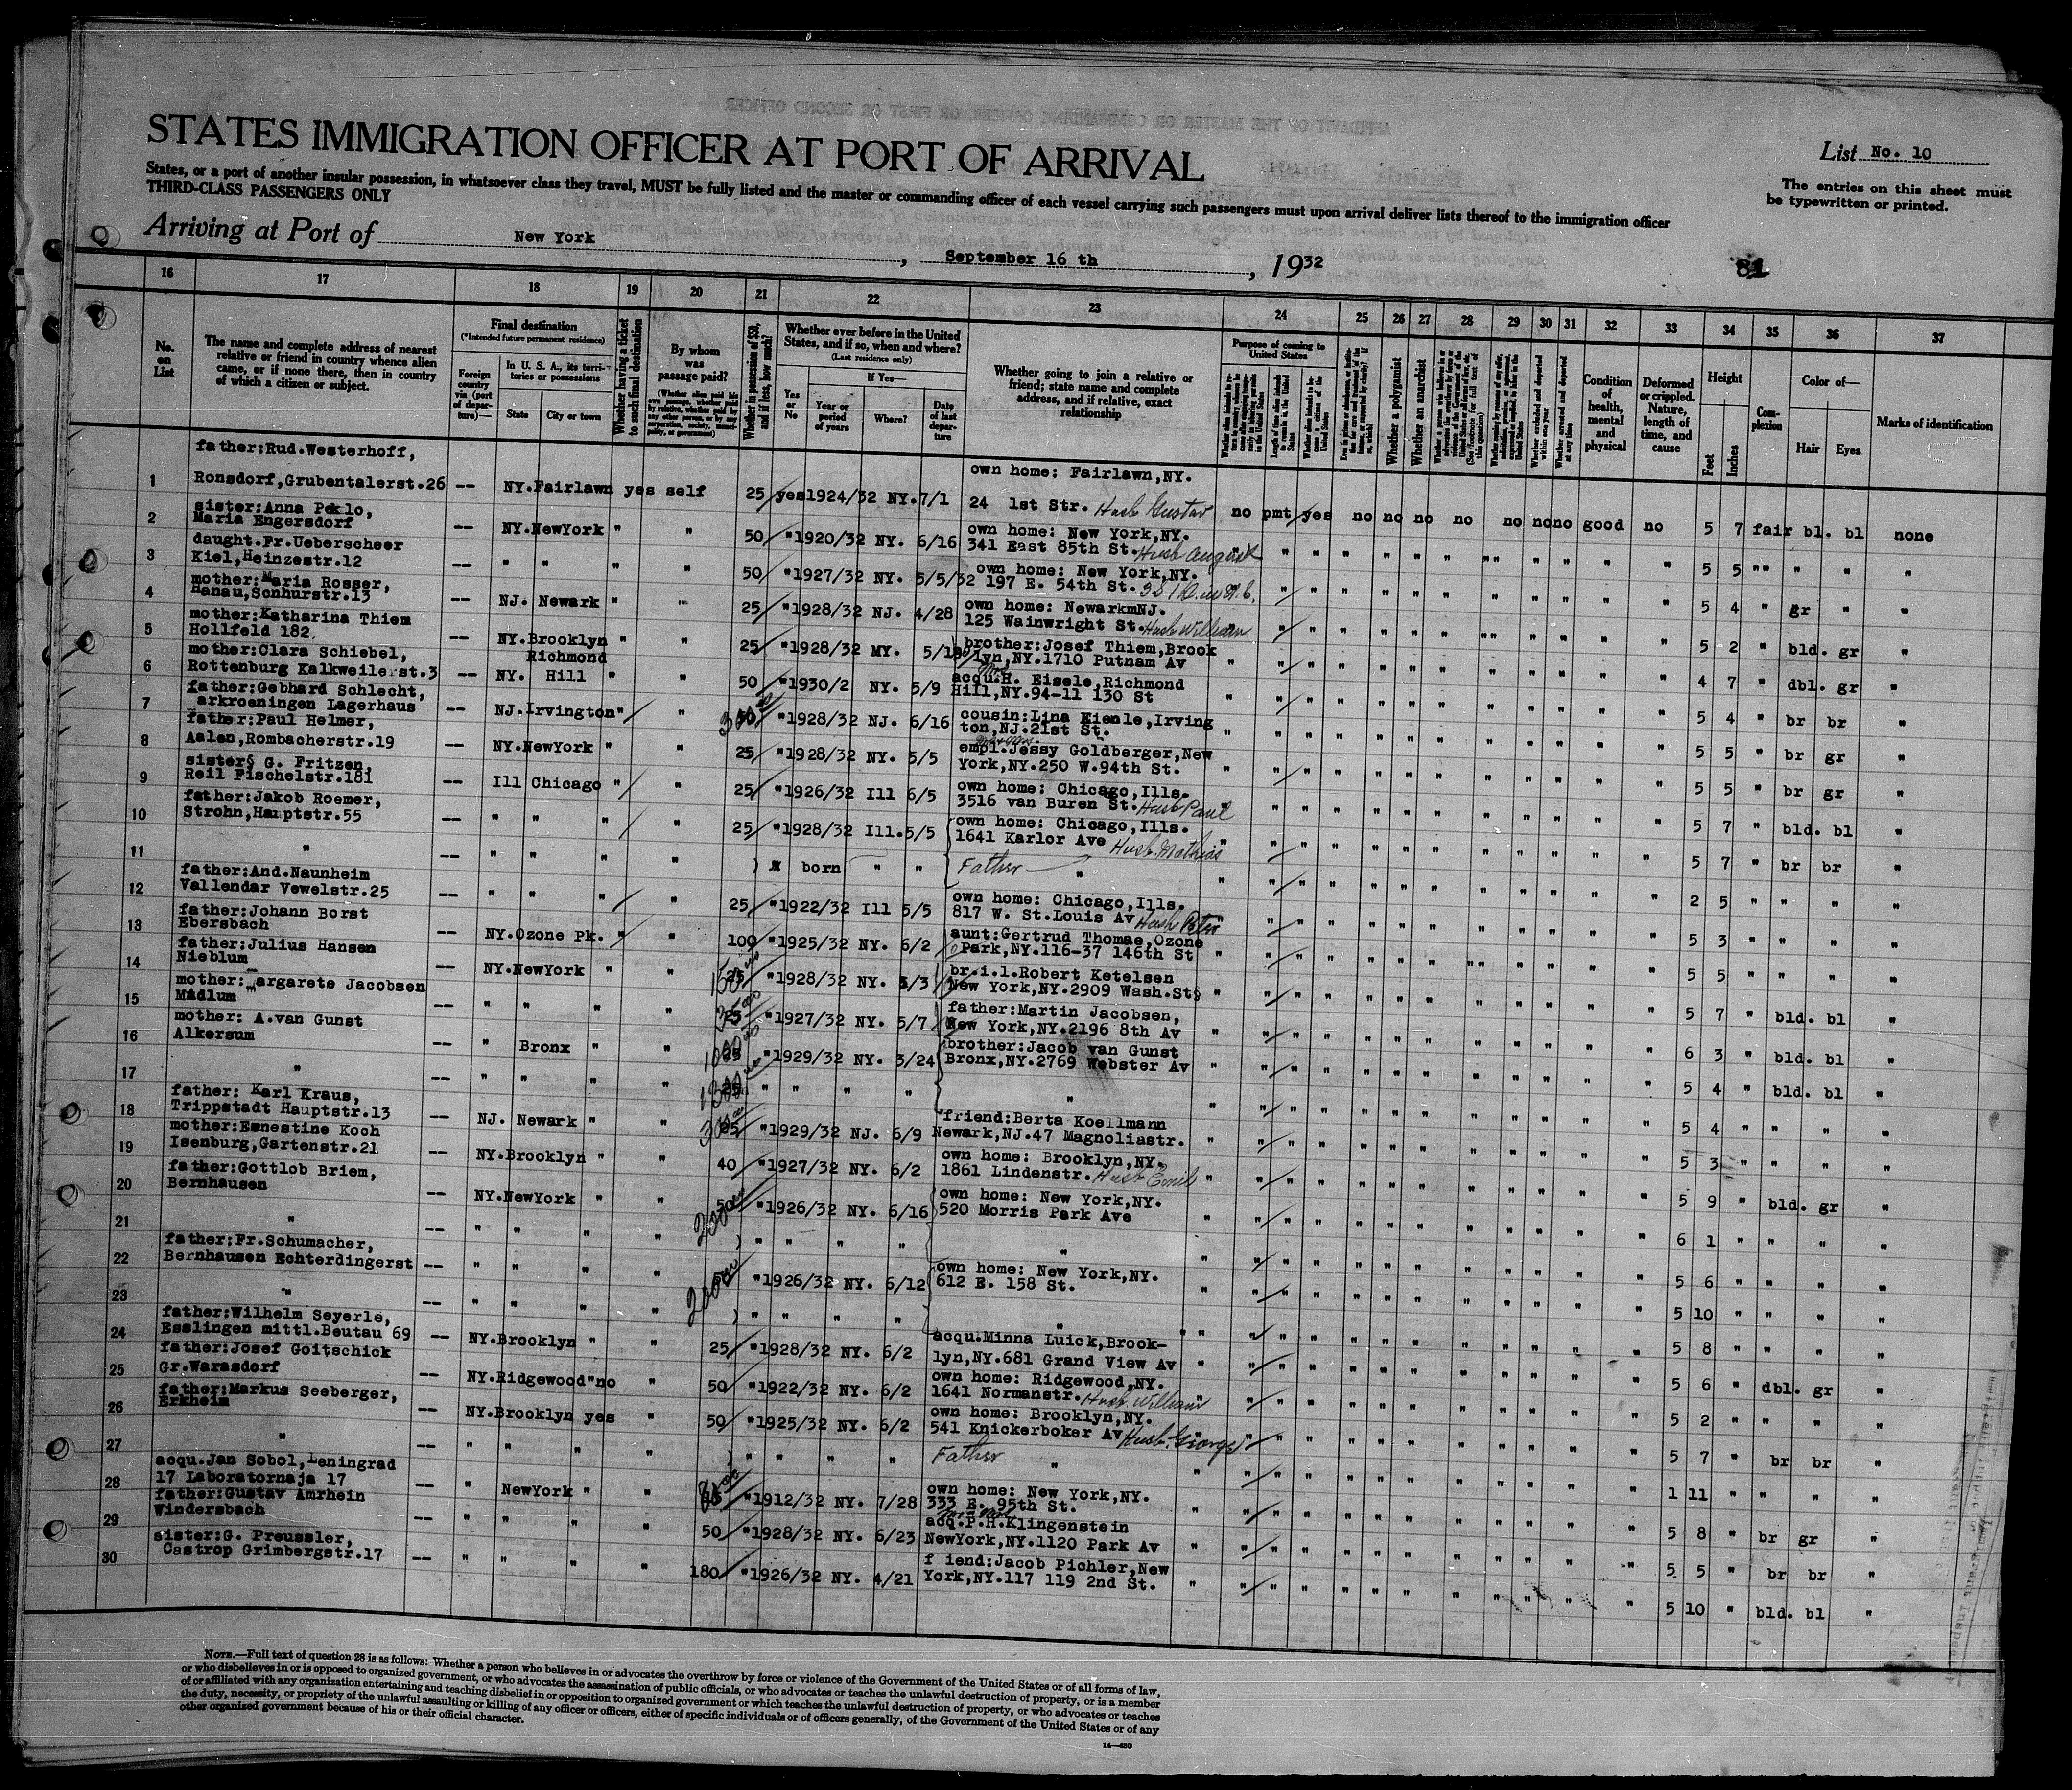 STATES IMMIGRATION OFFICER AT PORT OF ARRIVAL
List No. 10
States, or a port of another insular possession, in whatsoever class they travel, MUST be fully listed and the master or commanding officer of each vessel carrying such passengers must upon arrival deliver lists thereof to the immigration officer
THIRD-CLASS PASSENGERS ONLY
The entries on this sheet must
be typewritten or printed.
Arriving at Port of New York, September 16 th, 1932
16 17 18 19 20 21 22 23 24 25 26 27 28 29 30 31 32 33 34 35 36 37
No. on List
The name and complete address of nearest
relative or friend in country whence alien
came, or if none there, then in country
of which a citizen or subject.
Final destination
(*Intended future permanent residence)
Foreign country via (port of departure)—
In U. S. A., its territories or possessions
State City or town
Whether having a ticket to such final destination
By whom was passage paid?
Whether in possession of $50, and if less, how much?
Whether ever before in the United
States, and if so, when and where?
(Last residence only)
Yes or No
If Yes—
Year or period of years
Where?
Date of last departure
Whether going to join a relative or
friend; state name and complete
address, and if relative, exact
relationship
Purpose of coming to United States
Whether a polygamist
Whether an anarchist
Condition of health, mental and physical
Deformed or crippled. Nature, length of time, and cause
Height
Feet Inches
Complexion
Color of—
Hair Eyes
Marks of identification
father:Rud.Westerhoff,
own home: Fairlawn,NY.
1 Ronsdorf,Grubentalerst.26 -- NY.Fairlawn yes self 25 yes1924/32 NY.7/1 24 1st Str. Husb Gustav no pmt yes no no no no no no no good no 5 7 fair bl. bl none
sister:Anna Peklo,
2 Maria Engersdorf -- NY.NewYork " " 50 "1920/32 NY. 6/16 own home: New York,NY.
341 East 85th St. Husb August 5 5 " " " "
daught.Fr.Ueberscheer
3 Kiel,Heinzestr.12 -- " " " " 50 "1927/32 NY. 5/5/32 own home: New York,NY.
197 E. 54th St. 5 4 " gr " "
mother:Maria Rosser,
4 Hanau,Sonhurstr.13 -- NJ. Newark " " 25 "1928/32 NJ. 4/28 own home: NewarkmNJ.
125 Wainwright St. Husb William 5 2 " bld. gr "
mother:Katharina Thiem
5 Hollfeld 182 -- NY.Brooklyn " " 25 "1928/32 MY. brother:Josef Thiem,Brook
lyn,NY.1710 Putnam Av 4 7 " dbl. gr "
mother:Clara Schiebel,
6 Rottenburg Kalkweilerst.3 -- NY. Richmond Hill " " 50 "1930/2 NY. 5/9 acqu.H. Eisele,Richmond
Hill,NY.94-11 130 St 5 4 " br br "
father:Gebhard Schlecht,
7 arkroeningen Lagerhaus -- NJ.Irvington" " 300 "1928/32 NJ. 6/16 cousin:Lina Kienle,Irving
ton,NJ.21st St. 5 5 " br gr "
father:Paul Helmer,
8 Aalen,Rombacherstr.19 -- NY.NewYork " " 25 "1928/32 NY. 5/5 empl.Jessy Goldberger,New
York,NY.250 W.94th St. 5 5 " br gr "
sister§ G. Fritzen,
9 Reil Fischelstr.181 -- Ill Chicago " " 25 "1926/32 Ill 6/5 own home: Chicago,Ills.
3516 van Buren St. Husb Paul 5 7 " bld. bl "
father:Jakob Roemer,
10 Strohn,Hauptstr.55 -- " " " " 25 "1928/32 Ill.5/5 own home: Chicago,Ills.
1641 Karlor Ave Husb Mathias 5 7 " br br "
11 " -- " " " " born " " Father " 2 5 " " " "
father:And.Naunheim
12 Vallendar Vewelstr.25 -- " " " " 25 "1922/32 Ill 5/5 own home: Chicago,Ills.
817 W. St.Louis Av Husb Peter 5 3 " " " "
father:Johann Borst
13 Ebersbach -- NY.Ozone Pk. " " 100 "1925/32 NY. 6/2 aunt:Gertrud Thomae,Ozone
Park,NY.116-37 146th St 5 5 " " " "
father:Julius Hansen
14 Nieblum -- NY.NewYork " " "1928/32 NY. 5/3 br.i.l.Robert Ketelsen
New York,NY.2909 Wash.St§ 5 7 " bld. bl "
mother: argarete Jacobsen
15 Midlum -- " " " " "1927/32 NY. 5/7 father:Martin Jacobsen,
New York,NY.2196 8th Av 6 3 " bld. bl "
mother: A.van Gunst
16 Alkersum -- " Bronx " " "1929/32 NY. 3/24 brother:Jacob van Gunst
Bronx,NY.2769 Webster Av 5 4 " bld. bl "
17 " -- " " " " " " " " " 5 4 " " " "
father: Karl Kraus,
18 Trippstadt Hauptstr.13 -- NJ. Newark " " "1929/32 NJ. 6/9 friend:Berta Koellmann
Newark,NJ.47 Magnoliastr. 5 3 " " " "
mother:Esnestine Koch
19 Isenburg,Gartenstr.21 -- NY.Brooklyn " " 40 "1927/32 NY. 6/2 own home: Brooklyn,NY.
1861 Lindenstr. Husb Emil 5 9 " bld. gr "
father:Gottlob Briem,
20 Bernhausen -- NY.NewYork " " "1926/32 NY. 6/16 own home: New York,NY.
520 Morris Park Ave 6 1 " " " "
21 " -- " " " " " " " " " 5 6 " " " "
father:Fr.Schumacher,
22 Bernhausen Echterdingerst -- " " " " "1926/32 NY. 6/12 own home: New York,NY.
612 E. 158 St. 5 10 " " " "
23 " -- " " " " " " " " " 5 8 " " " "
father:Wilhelm Seyerle,
24 Esslingen mittl.Beutau 69 -- NY.Brooklyn " " 25 "1928/32 NY. 6/2 acqu.Minna Luick,Brook-
lyn,NY.681 Grand View Av 5 6 " dbl. gr "
father:Josef Goitschick
25 Gr.Warasdorf -- NY.Ridgewood"no " 50 "1922/32 NY. 6/2 own home: Ridgewood,NY.
1641 Normanstr. Husb William 5 2 " " " "
father:Markus Seeberger,
26 Erkheim -- NY.Brooklyn yes " 50 "1925/32 NY. 6/2 own home: Brooklyn,NY.
541 Knickerboker Av Husb. George 5 7 " br br "
27 " -- " " " " " " " " Father " 1 11 " " " "
acqu.Jan Sobol,Leningrad
28 17 Laboratornaja 17 -- " NewYork " " "1912/32 NY. 7/28 own home: New York,NY.
333 E. 95th St. 5 8 " br gr "
father:Gustav Amrhein
29 Windersbach -- " " " " 50 "1928/32 NY. 6/23 acq.P.H.Klingenstein
NewYork,NY.1120 Park Av 5 5 " br br "
sister:G. Preussler,
30 Castrop Grimbergstr.17 -- " " " " 180 "1926/32 NY. 4/21 f iend:Jacob Pichler,New
York,NY.117 119 2nd St. 5 10 " bld. bl "
NOTE.—Full text of question 28 is as follows: Whether a person who believes in or advocates the overthrow by force or violence of the Government of the United States or of all forms of law,
or who disbelieves in or is opposed to organized government, or who advocates the assassination of public officials, or who advocates or teaches the unlawful destruction of property, or is a member
of or affiliated with any organization entertaining and teaching disbelief in or opposition to organized government or which teaches the unlawful destruction of property, or who advocates or teaches
the duty, necessity, or propriety of the unlawful assaulting or killing of any officer or officers, either of specific individuals or of officers generally, of the Government of the United States or of any
other organized government because of his or their official character.
14—430